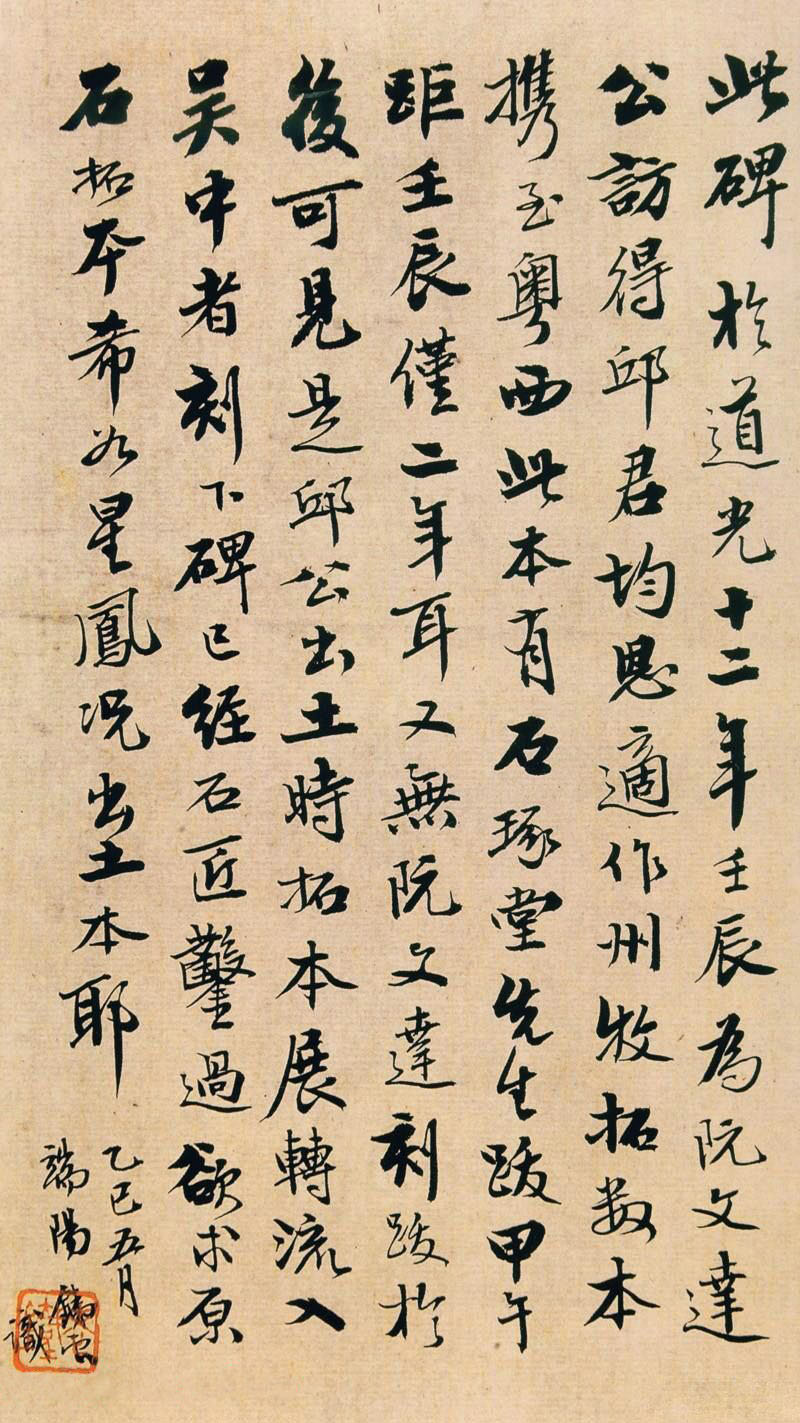 此碑於道光十二年壬辰為阮文達
公訪得邱君均恩適作州牧拓數本
携至粵西此本有石琢堂先生跋甲午
距壬辰僅二年耳又無阮文達刻跋於
後可見是邱公出土時拓本展轉流入
吳中者刻下碑已經石匠鑿過欲求原
石拓本希如星鳳况出土本耶
乙巳五月
端陽
識